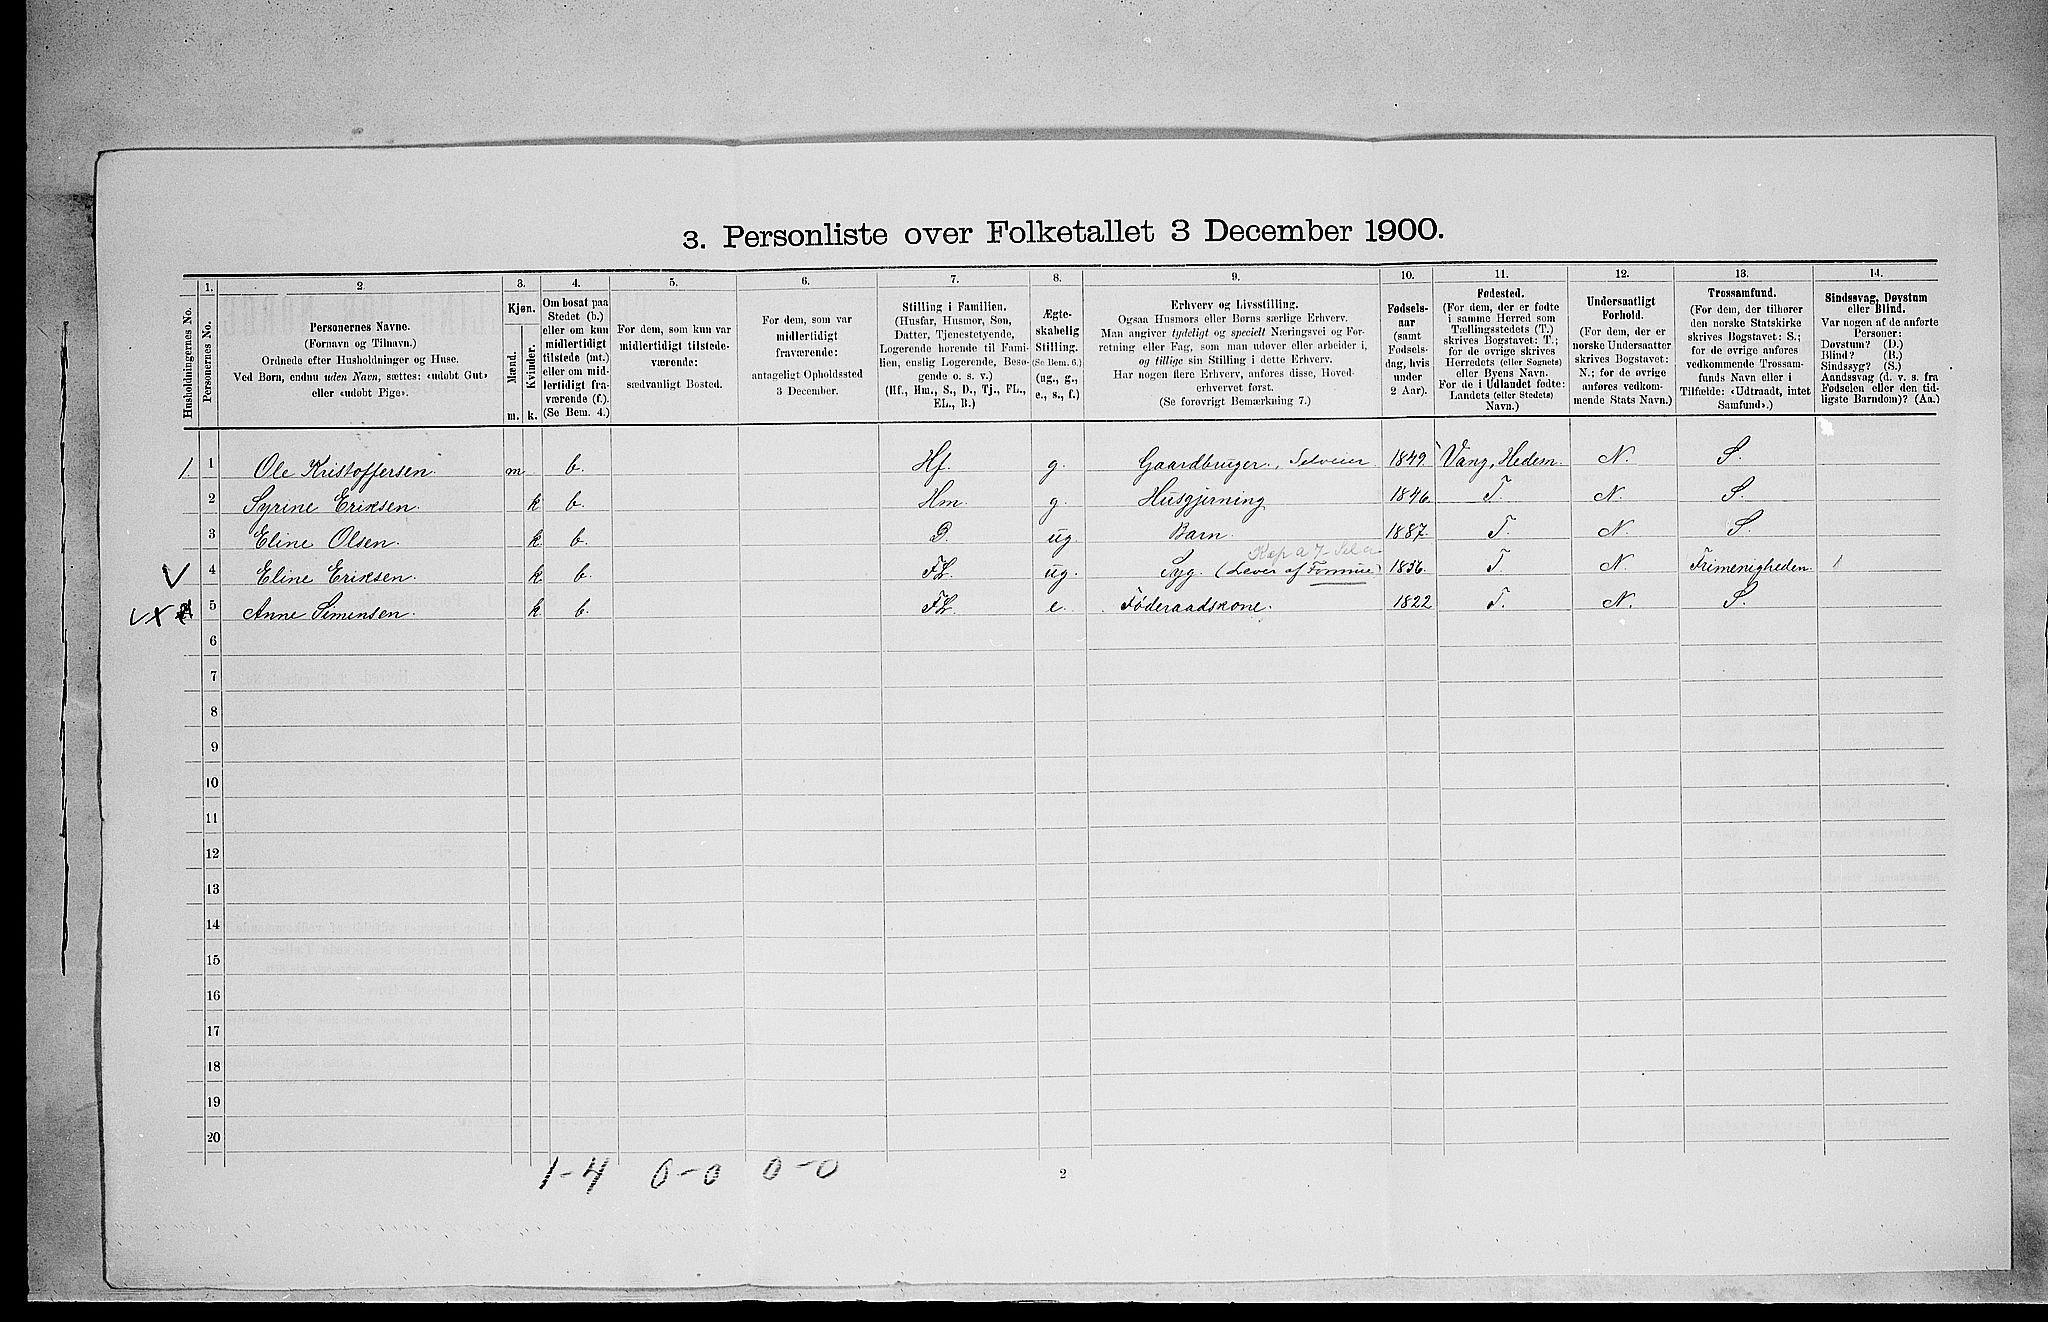 3. Personliste over Folketallet 3 December 1900.
Husholdningernes No.
1.
Personernes No.
2.
Personernes Navne.
(Fornavn og Tilnavn.)
Ordnede efter Husholdninger og Huse.
Ved Børn, endnu uden Navn, sættes: «udøbt Gut»
eller «udøbt Pige».
3.
Kjøn.
Mænd.
Kvinder.
m. k.
4.
Om bosat paa
Stedet (b.)
eller om kun
midlertidigt
tilstede (mt.)
eller om mid-
lertidigt fra-
værende (f.).
(Se Bem. 4.)
5.
For dem, som kun var
midlertidigt tilstede-
værende:
sædvanligt Bosted.
6.
For dem, som var
midlertidigt
fraværende:
antageligt Opholdssted
3 December.
7.
Stilling i Familien.
(Husfar, Husmor, Søn,
Datter, Tjenestetyende,
Logerende hørende til Fami-
lien, enslig Logerende, Besø-
gende o. s. v.)
(Hf., Hm., S., D., Tj., FL.,
EL., B.)
8.
Ægte-
skabelig
Stilling.
(Se Bem. 6.)
(ug., g.,
e., s., f.)
9.
Erhverv og Livsstilling.
Ogsaa Husmors eller Børns særlige Erhverv.
Man angiver tydeligt og specielt Næringsvei og For-
retning eller Fag, som man udøver eller arbeider i,
og tillige sin Stilling i dette Erhverv.
Har nogen flere Erhverv, anføres disse, Hoved-
erhvervet først.
(Se forøvrigt Bemærkning 7.)
10.
Fødsels-
aar
(samt
Fødsels-
dag, hvis
under
2 Aar).
11.
Fødested.
(For dem, der er fødte
i samme Herred som
Tællingsstedets (T.)
skrives Bogstavet: T.;
for de øvrige skrives
Herredets (eller Sognets)
eller Byens Navn.
For de i Udlandet fødte:
Landets (eller Stedets)
Navn.)
12.
Undersaatligt
Forhold.
(For dem, der er
norske Undersaatter
skrives Bogstavet:
N.; for de øvrige
anføres vedkom-
mende Stats Navn.)
13.
Trossamfund.
(For dem, der tilhører
den norske Statskirke
skrives Bogstavet: S.;
for de øvrige anføres
vedkommende Trossam-
funds Navn eller i
Tilfælde: «Udtraadt, intet
Samfund».)
14.
Sindssvag, Døvstum
eller Blind.
Var nogen af de anførte
Personer:
Døvstum? (D.)
Blind? (B.)
Sindssyg? (S.)
Aandssvag (d. v. s. fra
Fødselen eller den tid-
ligste Barndom)? (Aa.)
1 1 Ole Kristoffersen. m b. Hf. g. Gaardbruger, Selveier 1849 Vang, Hedem. N. S.
2 Syrine Eriksen. k b. Hm g. Husgjerning 1846 T. N. S.
3 Eline Olsen. k b. D. ug. Barn. 1887 T. N. S.
4 Eline Eriksen. k b. FL. ug. Syg. (Lever af Formue) 1836. T. N. Frimenigheden.
5 Anne Simensen. k b. FL. e. Føderaadskone. 1822 T. N. S.
6
7
8
9
10
11
12
13
14
15
16
17
18
19
20
1-4 0-0 0-0
2